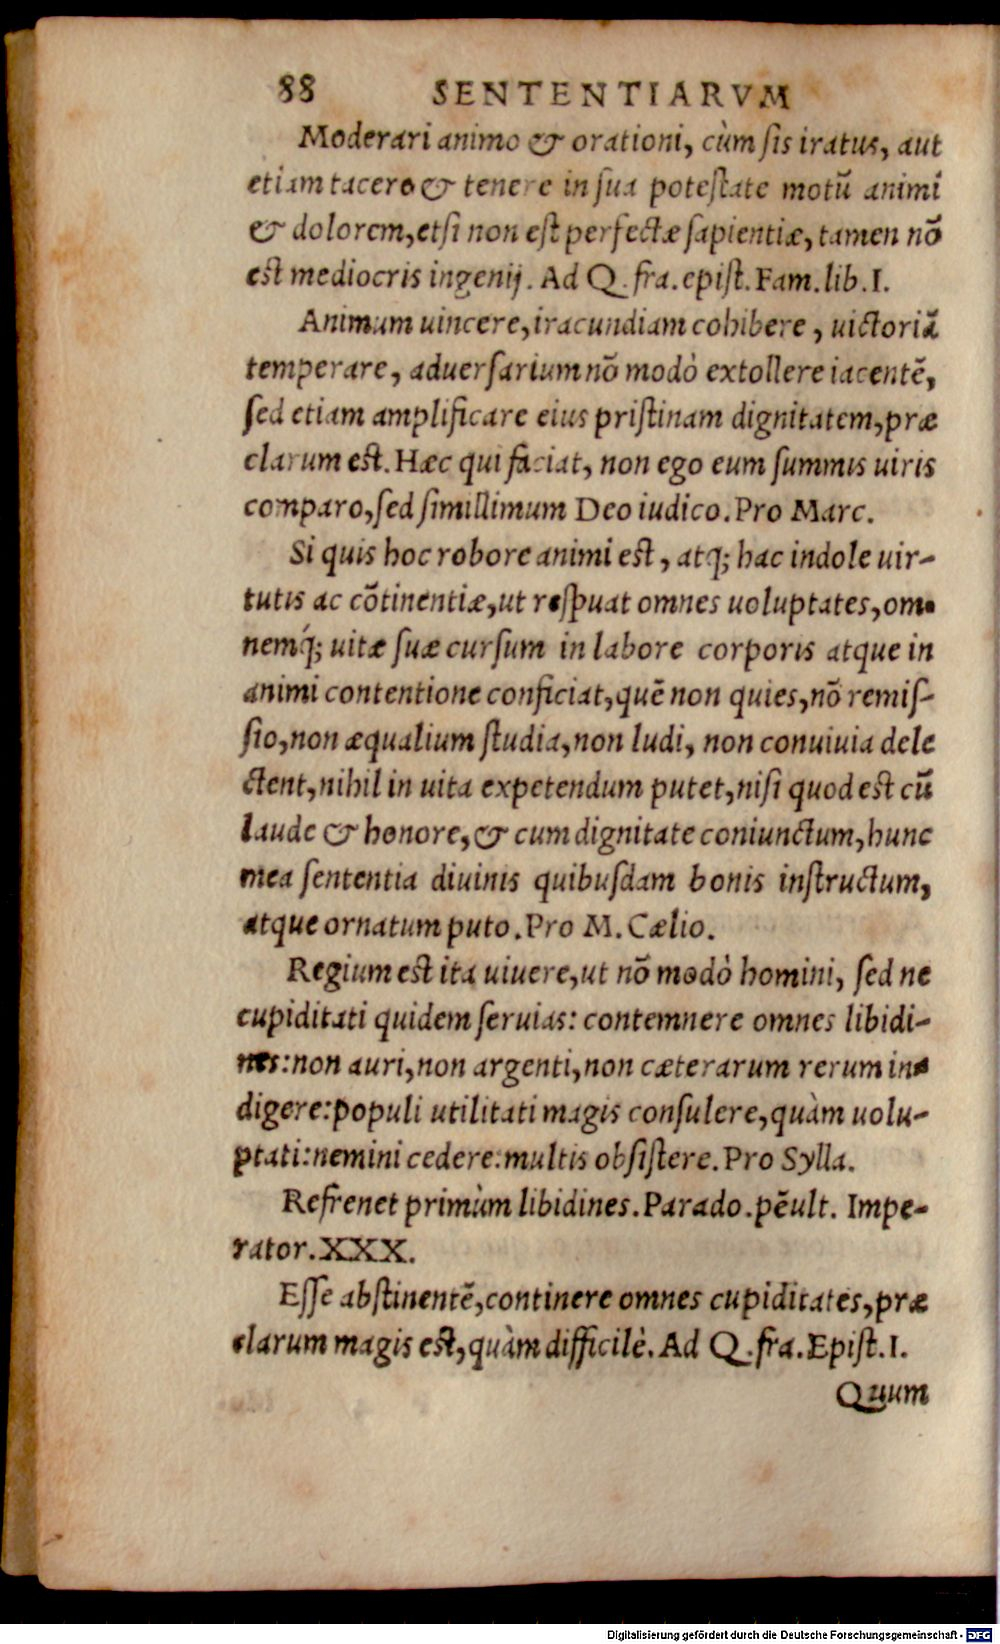 88 SENTENTIARVM
Moderari animo & orationi, cùm ſis iratus, aut
etiam tacere & tenere in ſua poteſtate motū animi
& dolorem, etſi non eſt perfectæ ſapientiæ, tamen nō
eſt mediocris ingenij. Ad Q. fra. epiſt. Fam. lib. I.
Animum uincere, iracundiam cohibere, uictoriā
temperare, aduerſarium nō modò extollere iacentē,
ſed etiam amplificare eius priſtinam dignitatem, præ
clarum eſt. Hæc qui faciat, non ego eum ſummis uiris
comparo, ſed ſimillimum Deo iudico. Pro Marc.
Si quis hoc robore animi eſt, atq; hac indole uir-
tutis ac cōtinentiæ, ut reſpuat omnes uoluptates, om-
nemq́; uitæ ſuæ curſum in labore corporis atque in
animi contentione conficiat, quē non quies, nō remiſ-
ſio, non æqualium ſtudia, non ludi, non conuiuia dele
ctent, nihil in uita expetendum putet, niſi quod eſt cū
laude & honore, & cum dignitate coniunctum, hunc
mea ſententia diuinis quibuſdam bonis inſtructum,
atque ornatum puto. Pro M. Cælio.
Regium eſt ita uiuere, ut nō modò homini, ſed ne
cupiditati quidem ſeruias: contemnere omnes libidi-
nes: non auri, non argenti, non cæterarum rerum in-
digere: populi utilitati magis conſulere, quàm uolu-
ptati: nemini cedere: multis obſiſtere. Pro Sylla.
Refrenet primùm libidines. Parado. pēult. Impe-
rator. XXX.
Eſſe abſtinentē, continere omnes cupiditates, præ
clarum magis eſt, quàm difficilè. Ad Q. fra. Epiſt. I.
Quum
Digitalisierung gefördert durch die Deutsche Forschungsgemeinschaft - DFG